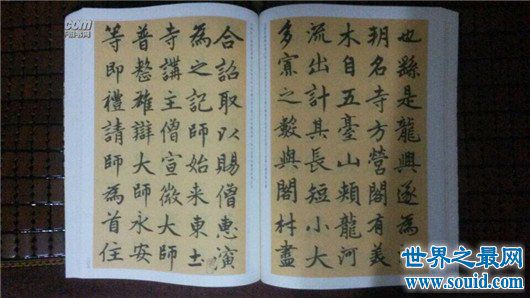 .com
也繇是龍興遂為
朔名寺方營閣有美
木自五臺山頰龍河
流出計其長短小大
多寡之數與閣材盡
合詔取以賜僧惠演
為之記師始来東土
寺講主僧宣微大師
普整雄辯大師永安
等即禮請師為首住
世界之最网
www.souid.com